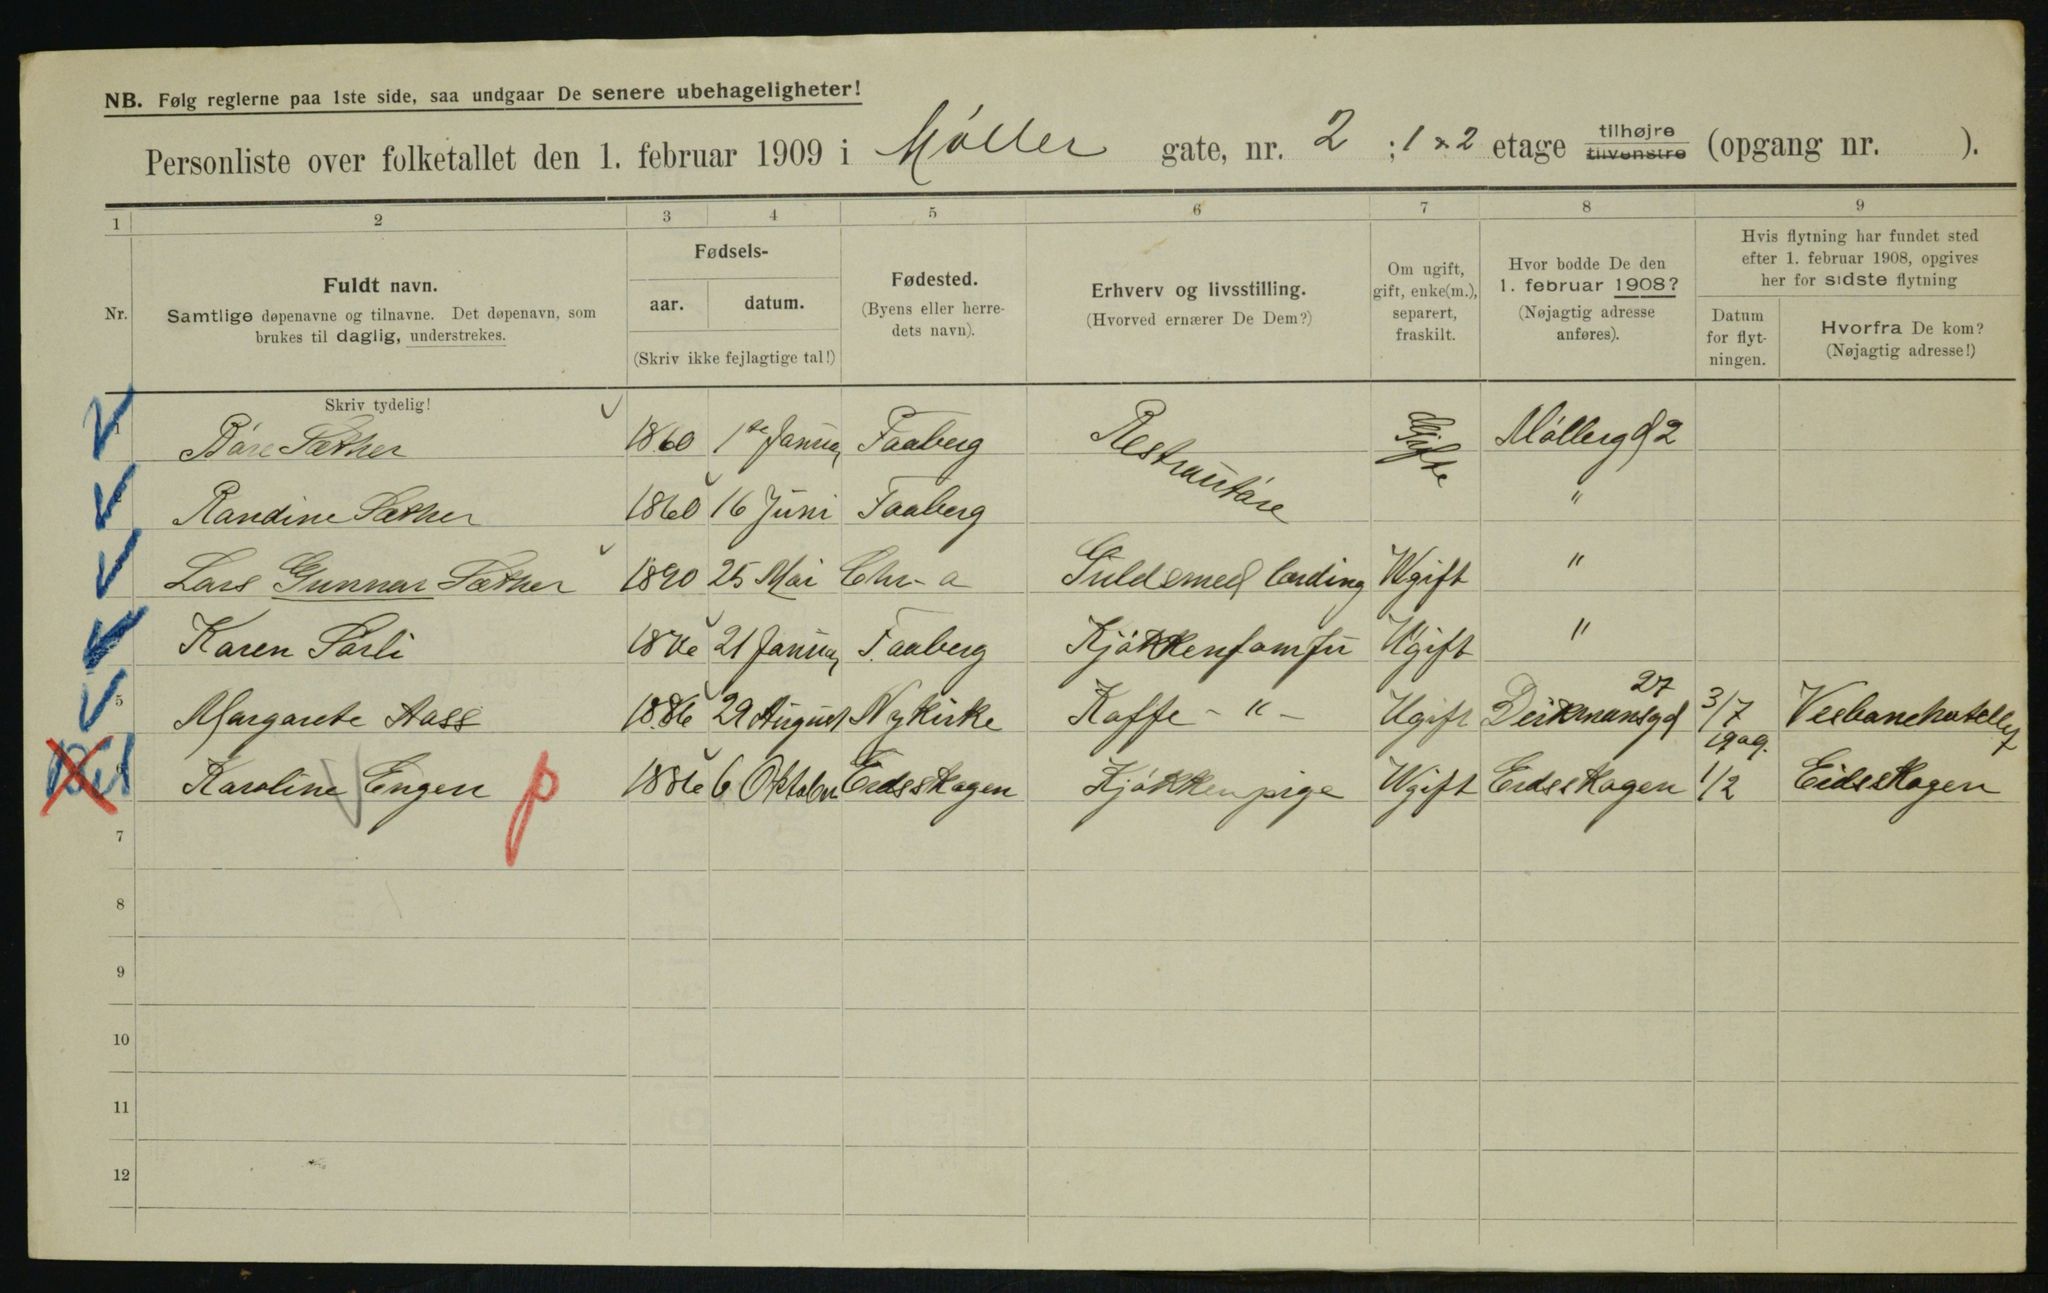 NB. Følg reglerne paa 1ste side, saa undgaar De senere ubehageligheter!
Personliste over folketallet den 1. februar 1909 i Møller gate, nr. 2 ; 1 & 2 etage tilhøjre tilvenstre (opgang nr. ).
1 2 3 4 5 6 7 8 9
Nr.
Fuldt navn.
Samtlige døpenavne og tilnavne. Det døpenavn, som
brukes til daglig, understrekes.
Skriv tydelig!
Fødsels-
aar. datum.
(Skriv ikke fejlagtige tal!)
Fødested.
(Byens eller herre-
dets navn).
Erhverv og livsstilling.
(Hvorved ernærer De Dem?)
Om ugift,
gift, enke(m.),
separert,
fraskilt.
Hvor bodde De den
1. februar 1908?
(Nøjagtig adresse
anføres).
Hvis flytning har fundet sted
efter 1. februar 1908, opgives
her for sidste flytning
Datum
for flyt-
ningen.
Hvorfra De kom?
(Nøjagtig adresse!)
1 Båre Sæther 1860 1ste Januar Faaberg Restrautøre Gifte Møllergd 2
Randine Sæther 1860 16 Juni Faaberg "
Lars Gunnar Sæther 1890 25 Mai Chr-a Guldsmed lærding Ugift "
Karen Sørli 21 Januar Faaberg Kjøkkenjomfru Ugift "
5 Margarete Aass 1886 29 August Nykirke Kaffe - " - Ugift Deikmansgd 27 3/7
6 Karoline Engen p 1886 6 Oktober Eidsskogen Kjøkkenpige Ugift Eidsskogen 1/2 1909. Eidsskogen
7
8
9
10
11
12